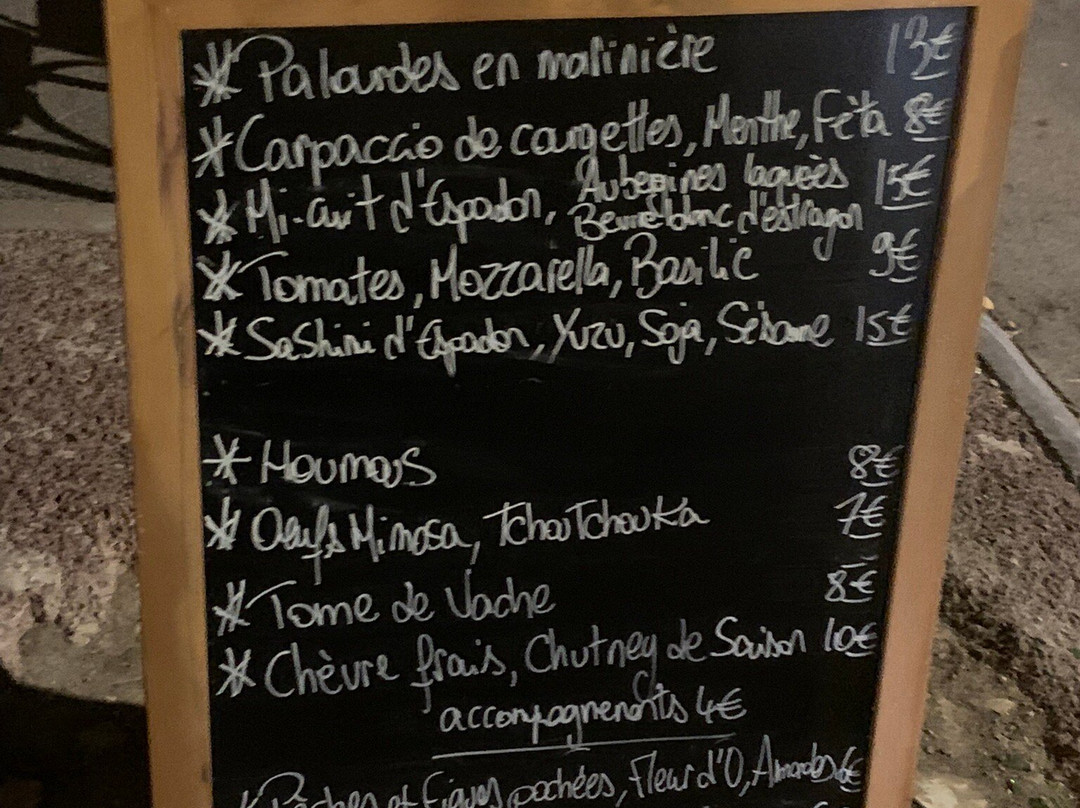 * Palourdes en marinière 13€
* Carpaccio de courgettes, Menthe, Fèta 8€
* Mi-cuit d'Espadon, Aubergines laquées 15€
Beurre blanc d'estragon
* Tomates, Mozzarella, Basilic 9€
* Sashimi d'Espadon, Yuzu, Soja, Sésame 15€
* Houmous 8€
* Oeufs Mimosa, TchouTchouka 7€
* Tome de Vache 8€
* Chèvre frais, Chutney de Saison 10€
accompagnements 4€
* Pêches et Figues pochées, Fleur d'O, Amandes 6€